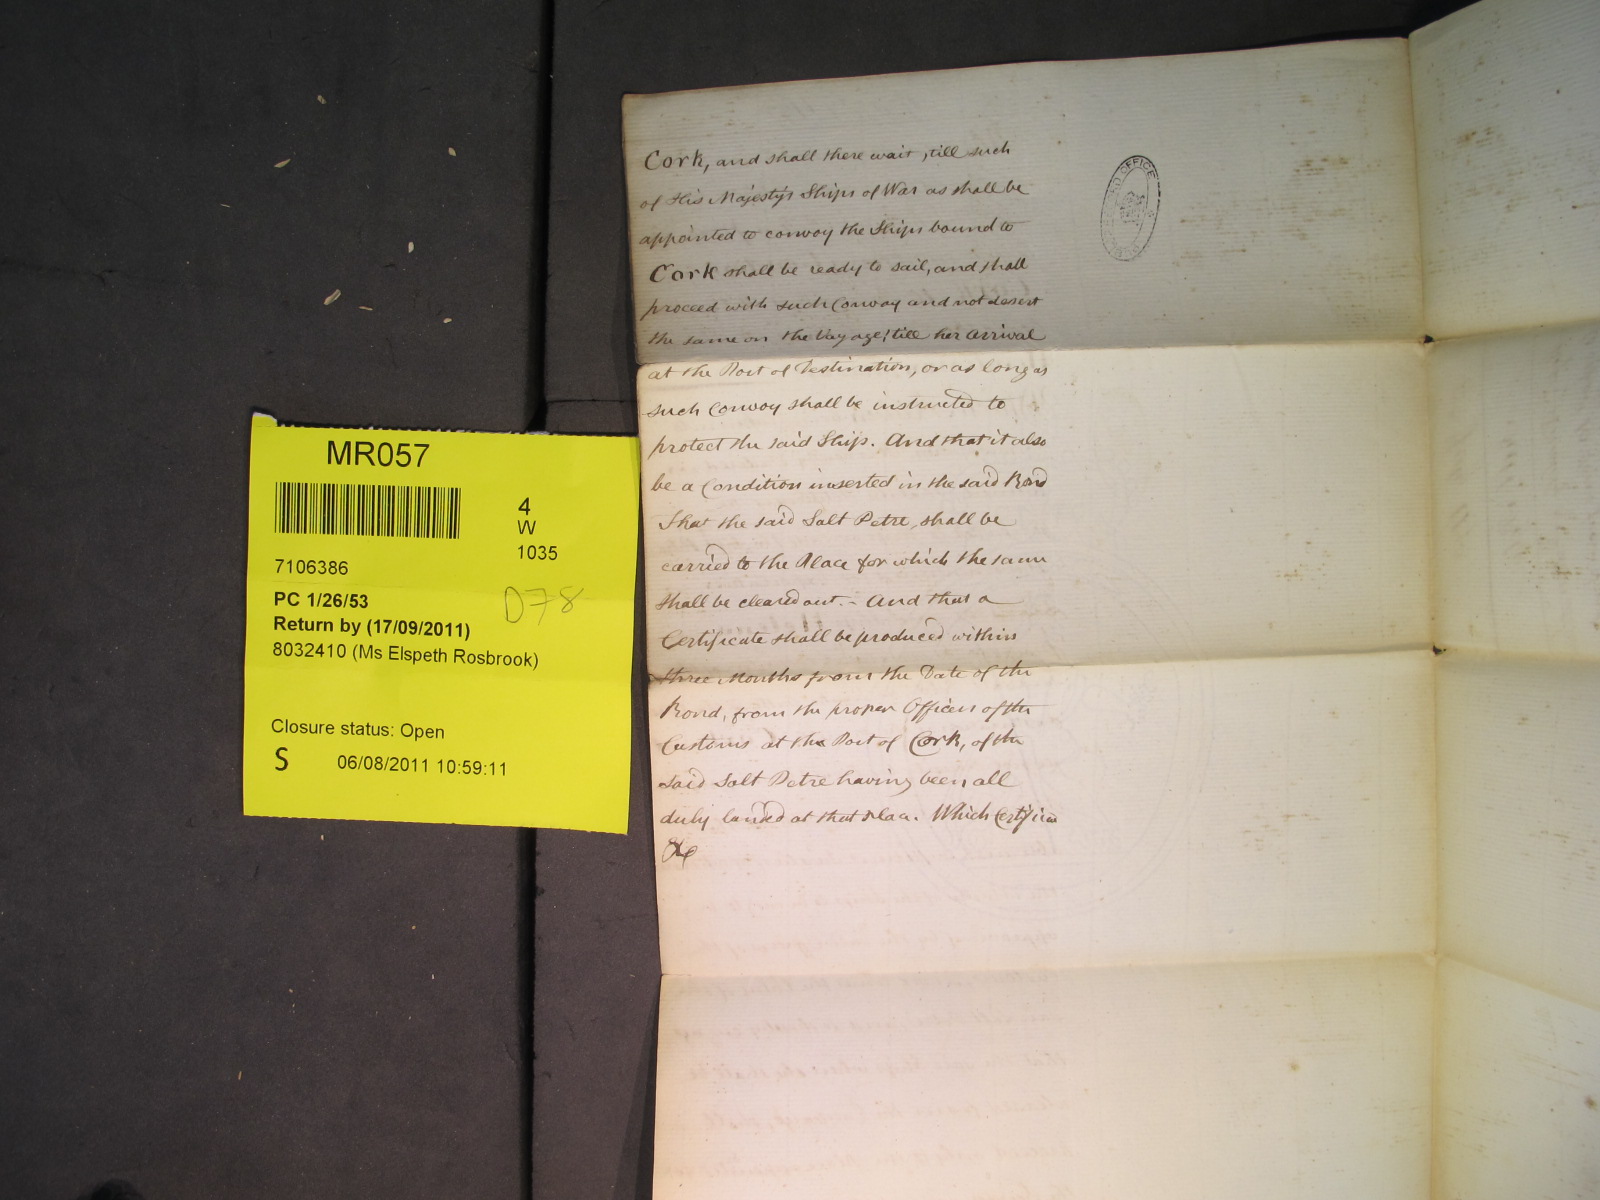 Cork, and shall there wait, till such
of His Majesty's Ships of War as shall be
appointed to convoy the Ships bound to
Cork shall be ready to sail, and shall
proceed with such Convoy and not desert
the same on the Voyage, till her Arrival
at the Port of Destination, or as long as
such Convoy shall be instructed to
protect the said Ship. And that it also
be a Condition inserted in the said Bond
That the said Salt Petre, shall be
carried to the Place for which the same
shall be cleared out. - And that a
Certificate shall be produced within
three Months from the Date of the
Bond, from the proper Officers of the
Customs at the Port of Cork, of the
said Salt Petre having been all
duly landed at that place. Which Certificate
&c
MR057
4
W
1035
7106386
PC 1/26/53
D78
Return by (17/09/2011)
8032410 (Ms Elspeth Rosbrook)
Closure status: Open
S 06/08/2011 10:59:11
OFFICE